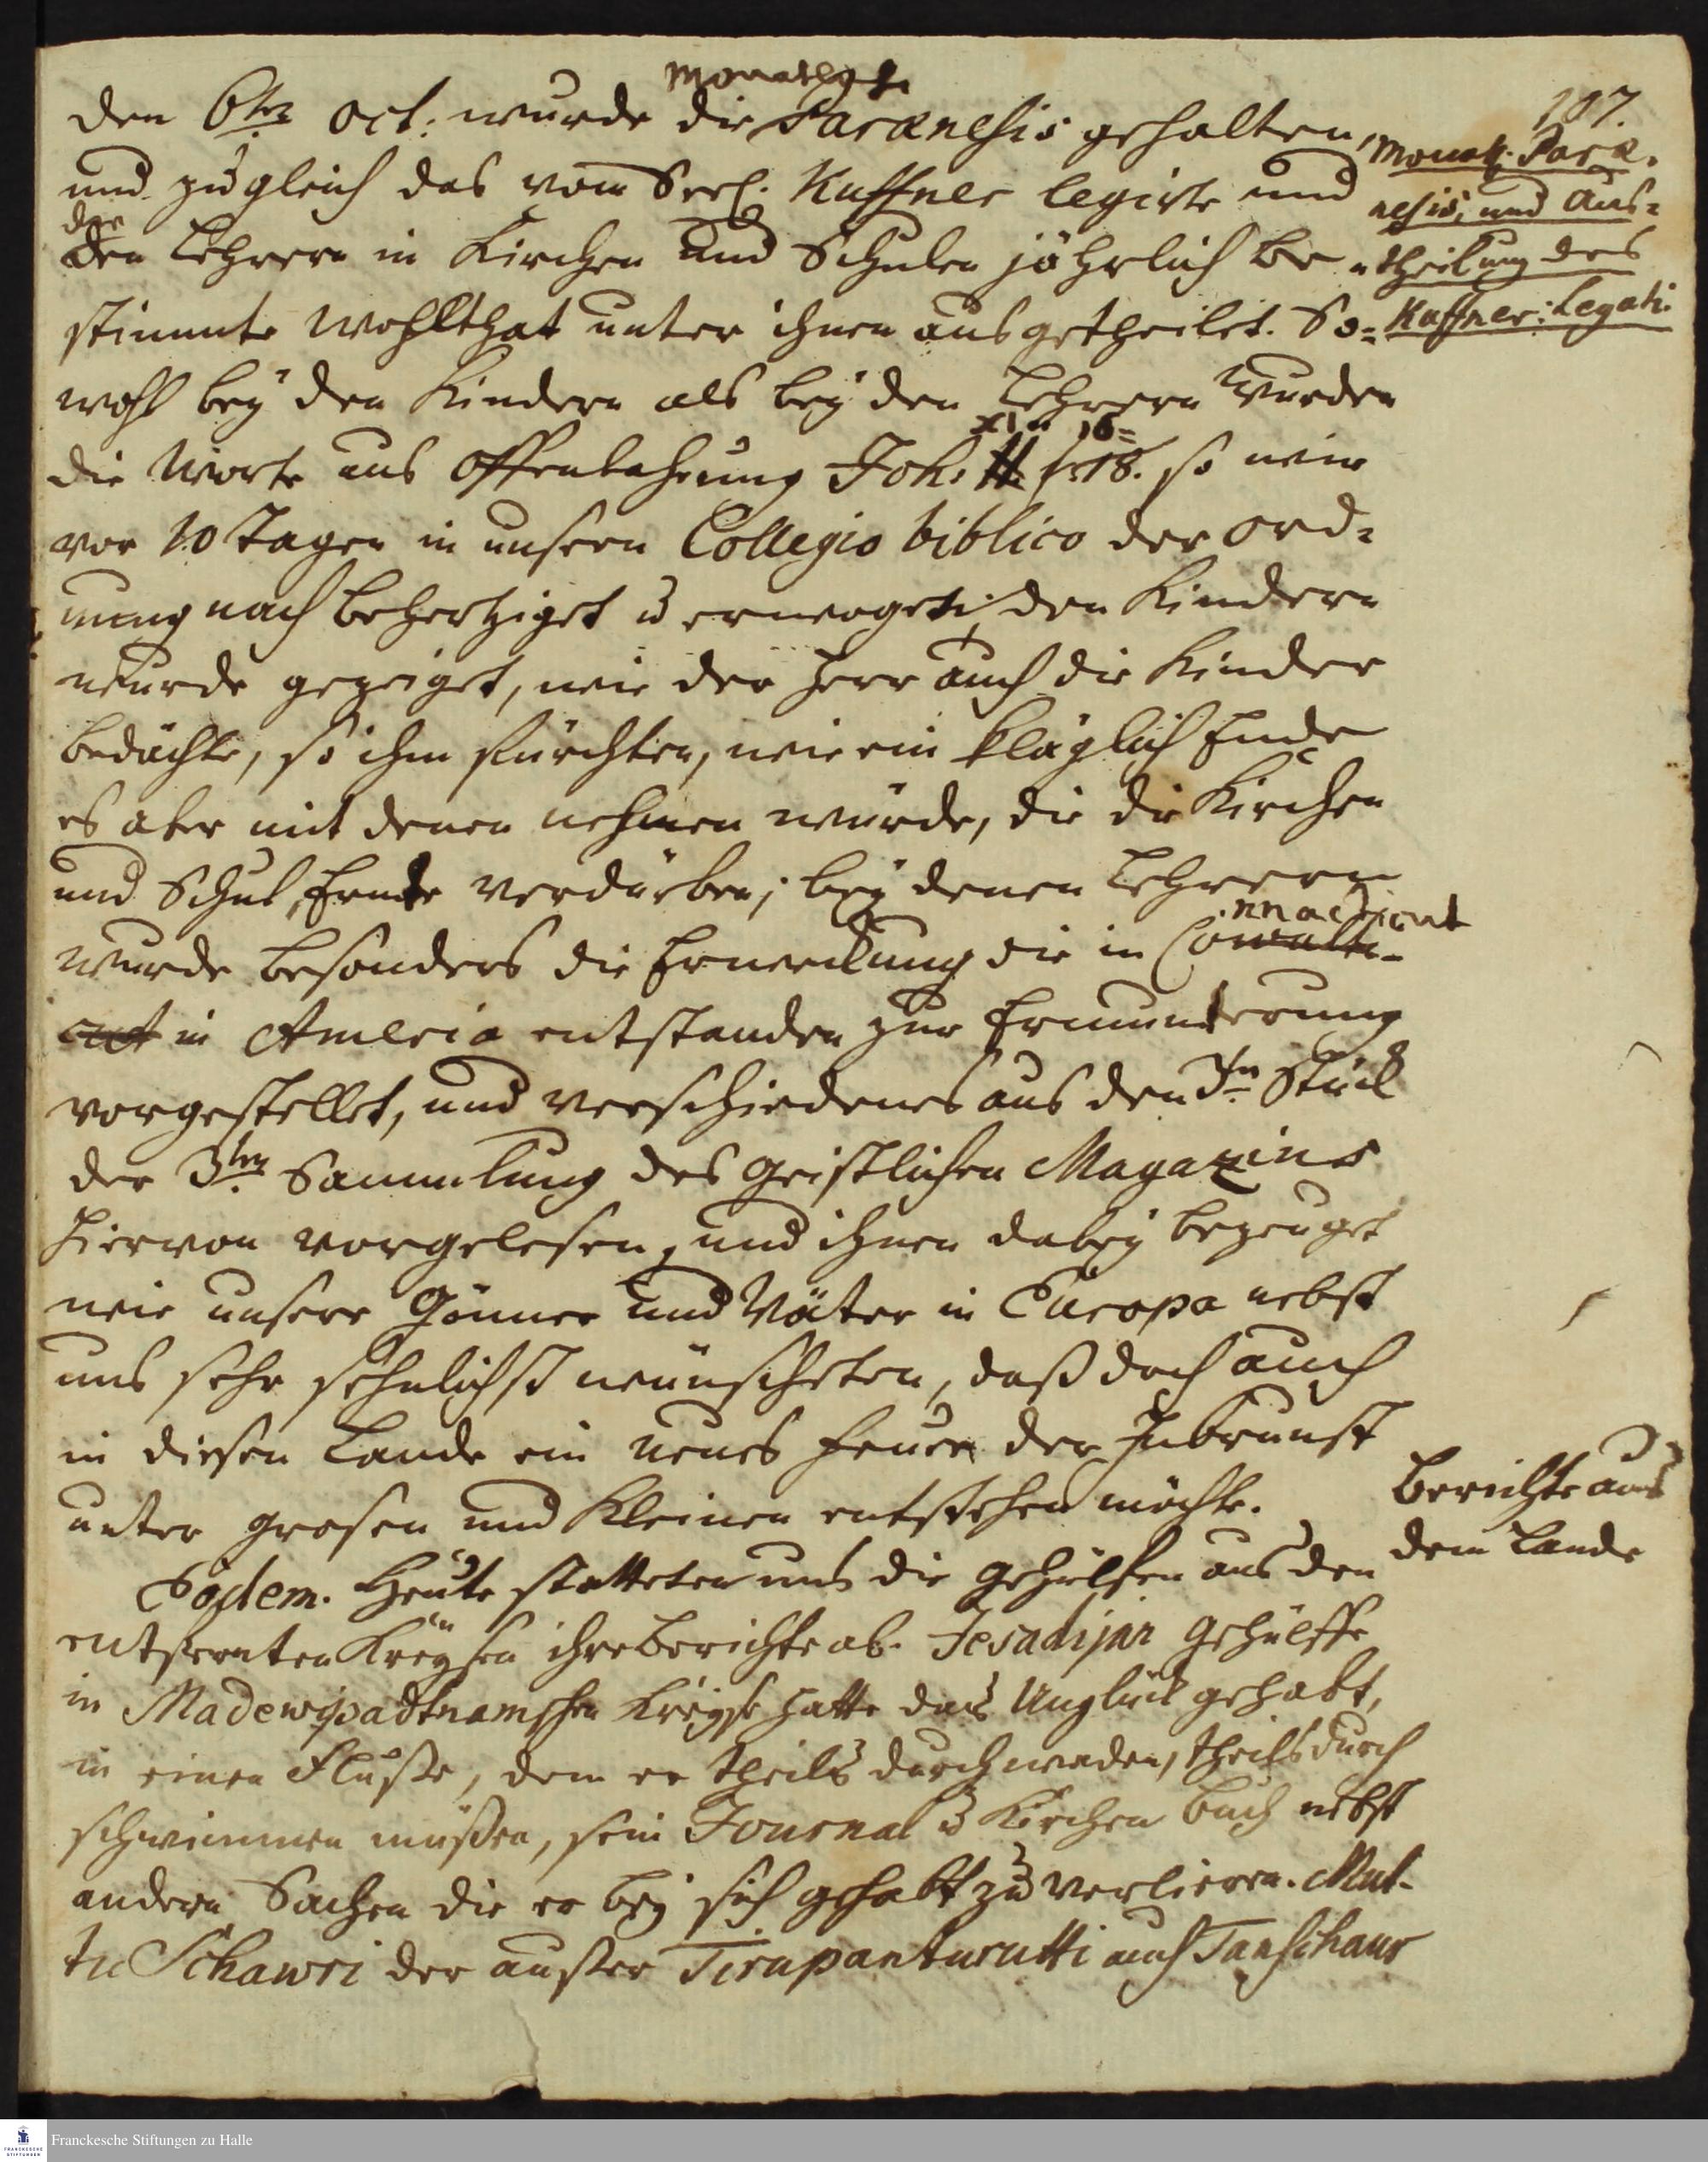 107.
monatl.
den 6ten Oct. wurde die Paraenesis gehalten,
und zugleich das vom Seel. Kuffner legirte und
der
den Lehrern in Kirchen und Schulen jährlich be-
stimmte Wohlthat unter ihnen ausgetheilet. So-
wohl bey den Kindern als bey den Lehrern wurden
XI 16=
die Worte aus Offenbahrung Joh. 18. so wir
vor 10 Tagen in unsern Collegio biblico der Ord-
nung nach behertziget u erwogen; den Kindern
wurde gezeiget, wie der Herr auch die Kinder
bedächte, so ihm fürchten, wie ein kläglich Ende
es aber mit denen nehmen würde, die die Kirchen
und Schul Erde verdürben; bey denen Lehrern
nnecticut
wurde besonders die Erweckung die in Co
in America entstanden zur Ermunterung
vorgestellet, und verschiedenes aus den Stück
der 3ten Sammlung des Geistlichen Magazins
hiervon vorgelesen, und ihnen dabey bezeuget
wie unsere Gönner und Väter in Europa nebst
uns sehr sehnlichst wünscheten, daß doch auch
in diesen Lande ein neues Feuer der Inbrunst
unter grosen und Kleinen entstehen möchte.
Eodem. Heute statteten uns die Gehülfen aus den
entfernten Kreysen ihre Berichte ab. Jesadijan Gehülffe
in Madewipadtnamschen Kreyse hatte das Unglück gehabt,
in einen Fluße, dem er theils durchwaden, theils durch
schwimmen müßen, sein Journal u Kirchen Buch nebst
andern Sachen die er bey sich gehabt zu verlieren. Mut-
tu Schawri der außer Tirupanturutti auch Tanschaur
Monatl. Parae-
nesis, und Aus-
theilung des
Kuffner: Legati.
Berichte aus
dem Lande
Franckesche Stiftungen zu Halle
FRANCKESCHE STIFTUNGEN